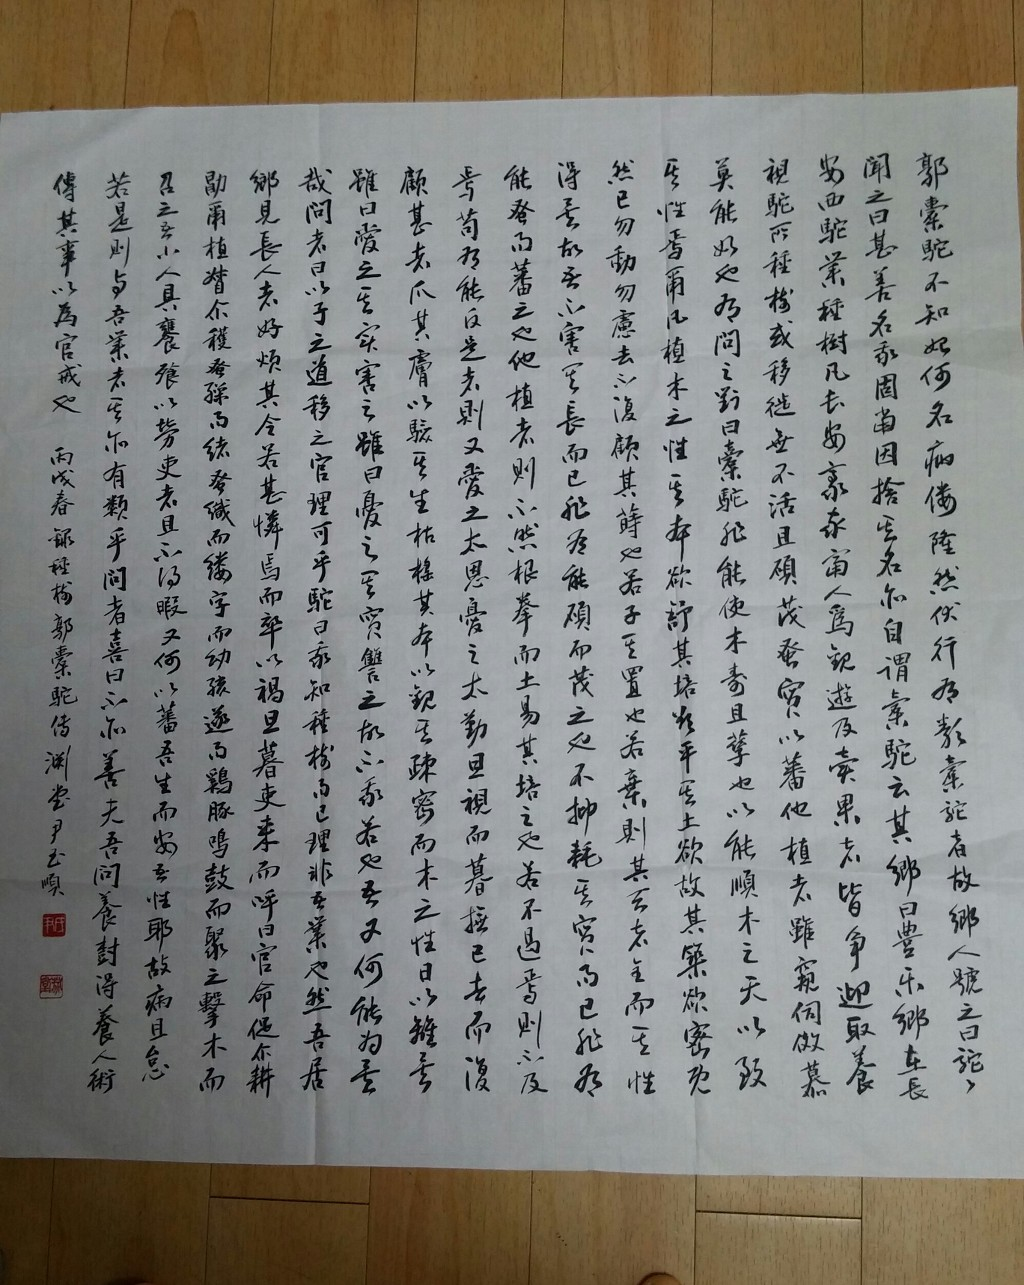 郭橐駝不知始何名病僂隆然伏行有類橐駝者故鄉人號之曰駝〻
聞之曰甚善名我固當因捨其名亦自謂橐駝云其鄉曰豊乐鄉在長
安西駝業種樹凡長安豪家富人爲観遊及賣果者皆爭迎取養
視駝所種樹或移徙無不活且碩茂蚤實以蕃他植者雖窺伺傚慕
莫能如也有問之對曰橐駝非能使木壽且孳也以能順木之天以致
其性焉爾凡植木之性其本欲舒其培欲平其土欲故其築欲密既
然已勿動勿慮去不復顧其蒔也若子其置也若棄則其天者全而其性
得矣故吾不害其長而已非有能碩而茂之也不抑耗其實而已非有
能蚤而蕃之也他植者則不然根拳而土易其培之也若不過焉則不及
焉苟有能反是者則又愛之太恩憂之太勤旦視而暮撫已去而復
顧甚者爪其膚以驗其生枯搖其本以観其疎密而木之性日以離矣
雖曰愛之其实害之雖曰憂之其實讐之故不我若也吾又何能为矣
哉問者曰以子之道移之官理可乎駝曰我知種樹而已理非吾業也然吾居
鄉見長人者好煩其令若甚憐焉而卒以禍旦暮吏來而呼曰官命促尔耕
勖爾植督尔穫蚤繅而緒蚤織而縷字而幼孩遂而鷄豚鳴鼓而聚之擊木而
召之吾小人具饔飧以勞吏者且不得暇又何以蕃吾生而安吾性耶故病且怠
若是則与吾業者其亦有類乎問者喜曰不亦善夫吾問養樹得養人術
傳其事以為官戒也 丙戌春 錄種樹郭橐駝傳 淵堂 尹玉順